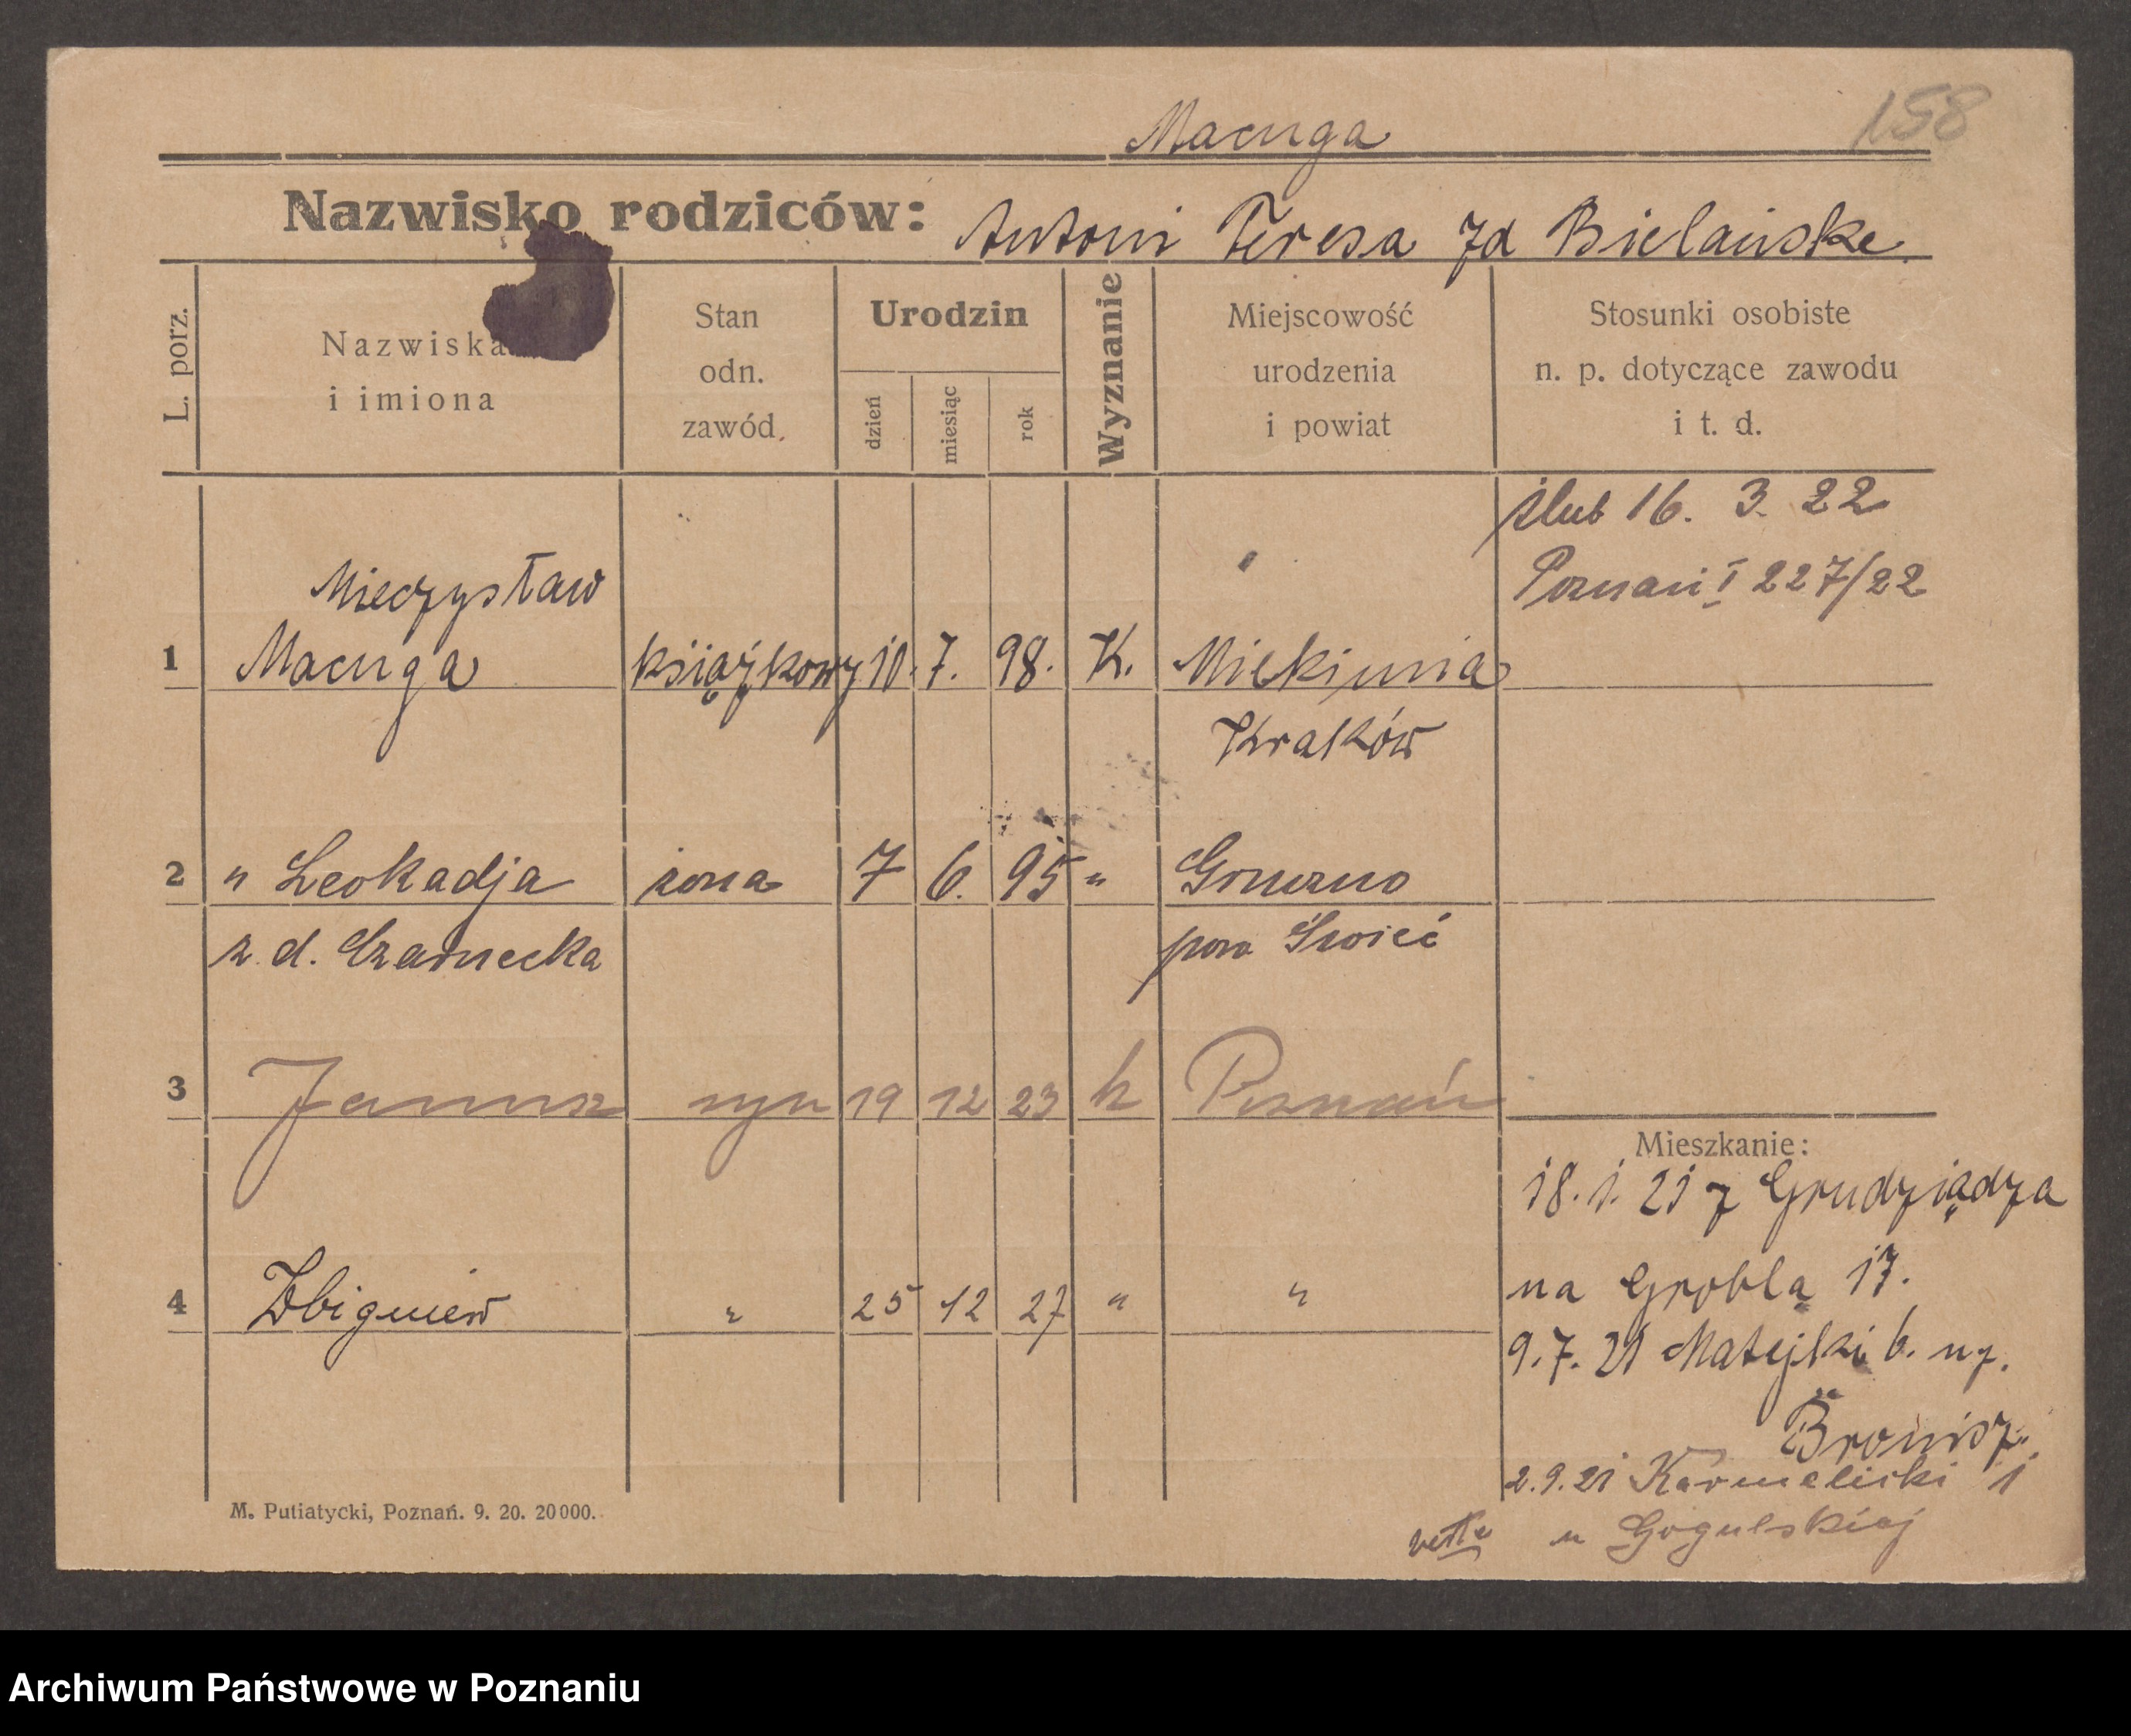 158
Macuga
Nazwisko rodziców: Antoni Teresa zd Bielańska
L. porz.
Nazwiska
i imiona
Stan
odn.
zawód.
Urodzin
dzień
miesiąc
rok
Wyznanie
Miejscowość
urodzenia
i powiat
Stosunki osobiste
n. p. dotyczące zawodu
i t. d.
ślub 16. 3. 22
Poznań I 227/22
Mieczysław
1 Macuga książkowy 10. 7. 98. K. Miekinia
Kraków
2 " Leokadja żona 7 6. 95 " Gruczno
z d. Czarnecka pow Świeć
3 Janusz syn 19 12 23 k Poznań
Mieszkanie:
18. 1. 21 z Grudziądza
na Groblą 17.
4 Zbigniew " 25 12 27 " "
9. 7. 21 Matejki 6. u p.
Bronisz.
2. 9. 21 Karmelicki 1
u Gogulskiej
M. Putiatycki, Poznań. 9. 20. 20000.
Archiwum Państwowe w Poznaniu